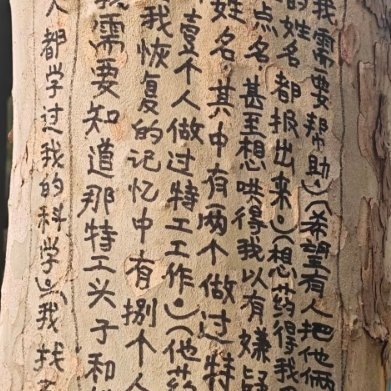 我需要帮助。(希望有人把他俩
的姓名都报出来。)(想药得我
点名甚至想哄得我以有嫌疑
姓名其中有两个做过特
壹个人做过特工工作。(他药
我恢复的记忆中有捌个
我需要知道那特工头子和
人都学过我的科学。(我找